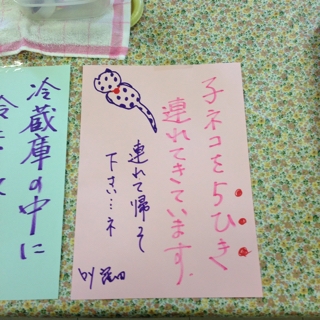 子ネコを5ひき
連れてきています.
連れて帰って
下さい…ネ
by
冷蔵庫の中に